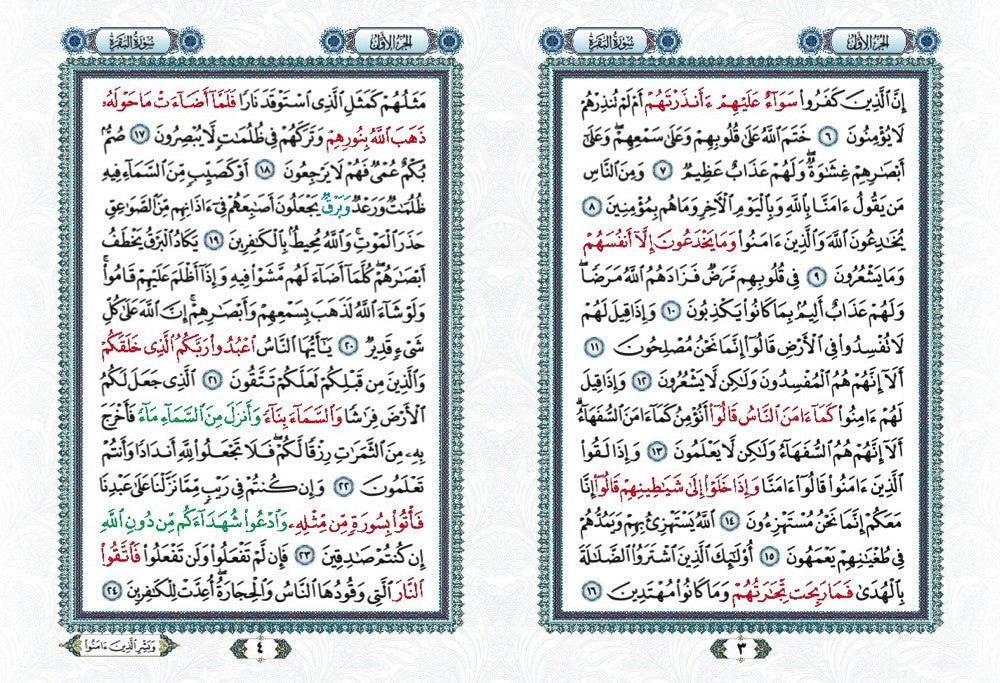 الجزء الأول
سورة البقرة
إِنَّ ٱلَّذِينَ كَفَرُوا۟ سَوَآءٌ عَلَيْهِمْ ءَأَنذَرْتَهُمْ أَمْ لَمْ تُنذِرْهُمْ
لَا يُؤْمِنُونَ ٦ خَتَمَ ٱللَّهُ عَلَىٰ قُلُوبِهِمْ وَعَلَىٰ سَمْعِهِمْ ۖ وَعَلَىٰٓ
أَبْصَٰرِهِمْ غِشَٰوَةٌ ۖ وَلَهُمْ عَذَابٌ عَظِيمٌ ٧ وَمِنَ ٱلنَّاسِ
مَن يَقُولُ ءَامَنَّا بِٱللَّهِ وَبِٱلْيَوْمِ ٱلْـَٔاخِرِ وَمَا هُم بِمُؤْمِنِينَ ٨
يُخَٰدِعُونَ ٱللَّهَ وَٱلَّذِينَ ءَامَنُوا۟ وَمَا يَخْدَعُونَ إِلَّآ أَنفُسَهُمْ
وَمَا يَشْعُرُونَ ٩ فِى قُلُوبِهِم مَّرَضٌ فَزَادَهُمُ ٱللَّهُ مَرَضًا ۖ
وَلَهُمْ عَذَابٌ أَلِيمٌۢ بِمَا كَانُوا۟ يَكْذِبُونَ ١٠ وَإِذَا قِيلَ لَهُمْ
لَا تُفْسِدُوا۟ فِى ٱلْأَرْضِ قَالُوٓا۟ إِنَّمَا نَحْنُ مُصْلِحُونَ ١١
أَلَآ إِنَّهُمْ هُمُ ٱلْمُفْسِدُونَ وَلَٰكِن لَّا يَشْعُرُونَ ١٢ وَإِذَا قِيلَ
لَهُمْ ءَامِنُوا۟ كَمَآ ءَامَنَ ٱلنَّاسُ قَالُوٓا۟ أَنُؤْمِنُ كَمَآ ءَامَنَ ٱلسُّفَهَآءُ ۗ
أَلَآ إِنَّهُمْ هُمُ ٱلسُّفَهَآءُ وَلَٰكِن لَّا يَعْلَمُونَ ١٣ وَإِذَا لَقُوا۟
ٱلَّذِينَ ءَامَنُوا۟ قَالُوٓا۟ ءَامَنَّا وَإِذَا خَلَوْا۟ إِلَىٰ شَيَٰطِينِهِمْ قَالُوٓا۟ إِنَّا
مَعَكُمْ إِنَّمَا نَحْنُ مُسْتَهْزِءُونَ ١٤ ٱللَّهُ يَسْتَهْزِئُ بِهِمْ وَيَمُدُّهُمْ
فِى طُغْيَٰنِهِمْ يَعْمَهُونَ ١٥ أُو۟لَٰٓئِكَ ٱلَّذِينَ ٱشْتَرَوُا۟ ٱلضَّلَٰلَةَ
بِٱلْهُدَىٰ فَمَا رَبِحَت تِّجَٰرَتُهُمْ وَمَا كَانُوا۟ مُهْتَدِينَ ١٦
٣
الجزء الأول
سورة البقرة
مَثَلُهُمْ كَمَثَلِ ٱلَّذِى ٱسْتَوْقَدَ نَارًا فَلَمَّآ أَضَآءَتْ مَا حَوْلَهُۥ
ذَهَبَ ٱللَّهُ بِنُورِهِمْ وَتَرَكَهُمْ فِى ظُلُمَٰتٍ لَّا يُبْصِرُونَ ١٧ صُمٌّۢ
بُكْمٌ عُمْىٌ فَهُمْ لَا يَرْجِعُونَ ١٨ أَوْ كَصَيِّبٍ مِّنَ ٱلسَّمَآءِ فِيهِ
ظُلُمَٰتٌ وَرَعْدٌ وَبَرْقٌ يَجْعَلُونَ أَصَٰبِعَهُمْ فِىٓ ءَاذَانِهِم مِّنَ ٱلصَّوَٰعِقِ
حَذَرَ ٱلْمَوْتِ ۚ وَٱللَّهُ مُحِيطٌۢ بِٱلْكَٰفِرِينَ ١٩ يَكَادُ ٱلْبَرْقُ يَخْطَفُ
أَبْصَٰرَهُمْ ۖ كُلَّمَآ أَضَآءَ لَهُم مَّشَوْا۟ فِيهِ وَإِذَآ أَظْلَمَ عَلَيْهِمْ قَامُوا۟ ۚ
وَلَوْ شَآءَ ٱللَّهُ لَذَهَبَ بِسَمْعِهِمْ وَأَبْصَٰرِهِمْ ۚ إِنَّ ٱللَّهَ عَلَىٰ كُلِّ
شَىْءٍ قَدِيرٌ ٢٠ يَٰٓأَيُّهَا ٱلنَّاسُ ٱعْبُدُوا۟ رَبَّكُمُ ٱلَّذِى خَلَقَكُمْ
وَٱلَّذِينَ مِن قَبْلِكُمْ لَعَلَّكُمْ تَتَّقُونَ ٢١ ٱلَّذِى جَعَلَ لَكُمُ
ٱلْأَرْضَ فِرَٰشًا وَٱلسَّمَآءَ بِنَآءً وَأَنزَلَ مِنَ ٱلسَّمَآءِ مَآءً فَأَخْرَجَ
بِهِۦ مِنَ ٱلثَّمَرَٰتِ رِزْقًا لَّكُمْ ۖ فَلَا تَجْعَلُوا۟ لِلَّهِ أَندَادًا وَأَنتُمْ
تَعْلَمُونَ ٢٢ وَإِن كُنتُمْ فِى رَيْبٍ مِّمَّا نَزَّلْنَا عَلَىٰ عَبْدِنَا
فَأْتُوا۟ بِسُورَةٍ مِّن مِّثْلِهِۦ وَٱدْعُوا۟ شُهَدَآءَكُم مِّن دُونِ ٱللَّهِ
إِن كُنتُمْ صَٰدِقِينَ ٢٣ فَإِن لَّمْ تَفْعَلُوا۟ وَلَن تَفْعَلُوا۟ فَٱتَّقُوا۟
ٱلنَّارَ ٱلَّتِى وَقُودُهَا ٱلنَّاسُ وَٱلْحِجَارَةُ ۖ أُعِدَّتْ لِلْكَٰفِرِينَ ٢٤
٤
وَبَشِّرِ ٱلَّذِينَ ءَامَنُوا۟